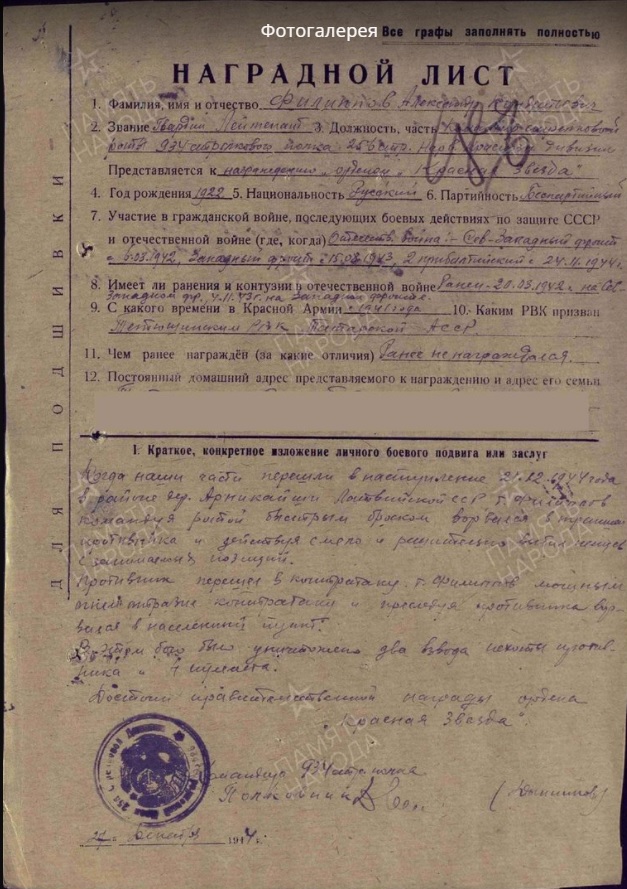 Фотогалерея
Все графы заполнять полностью
НАГРАДНОЙ ЛИСТ
1. Фамилия, имя и отчество Филиппов Александр
2. Звание Гвардии Лейтенант 3. Должность, часть
роты 934 стрелкового полка 256 стр. дивизии
Представляется к награждению орденом "Красная Звезда"
4. Год рождения 1922 5. Национальность Русский 6. Партийность Беспартийный
7. Участие в гражданской войне, последующих боевых действиях по защите СССР
и отечественной войне (где, когда) Отечеств. Война:- Сев-Западный фронт
с 5.03.1942, Западный фронт с 15.08.1943, 2 прибалтийский с 24.11.1944г.
8. Имеет ли ранения и контузии в отечественной войне Ранен-20.03.1942 г. на Сев.
Западном фр., 4.11.43г. на Западном фронте.
9. С какого времени в Красной Армии с 1941 года 10. Каким РВК призван
Тетюшинским РВК Татарской АССР.
11. Чем ранее награждён (за какие отличия) Ранее не награждался.
12. Постоянный домашний адрес представляемого к награждению и адрес его семьи
I. Краткое, конкретное изложение личного боевого подвига или заслуг
Когда наши части перешли в наступление 21.12.1944 года
в районе дер. Латвийской ССР т. Филиппов
командуя ротой быстрым броском ворвался в траншеи
противника и действуя смело и решительно выбил немцев
с занимаемых позиций.
Противник перешел в контратаку. т. Филиппов мощным
огнем отразив контратаки и преследуя противника вор-
вался в населенный пункт.
В этом бою было уничтожено два взвода пехоты против-
ника и 1 пулемета.
Достоин правительственной награды ордена
"Красная Звезда".
Командир 934 стр. полка
Полковник
декабря 1944г.
ДЛЯ ПОДШИВКИ
ПАМЯТЬ НАРОДА